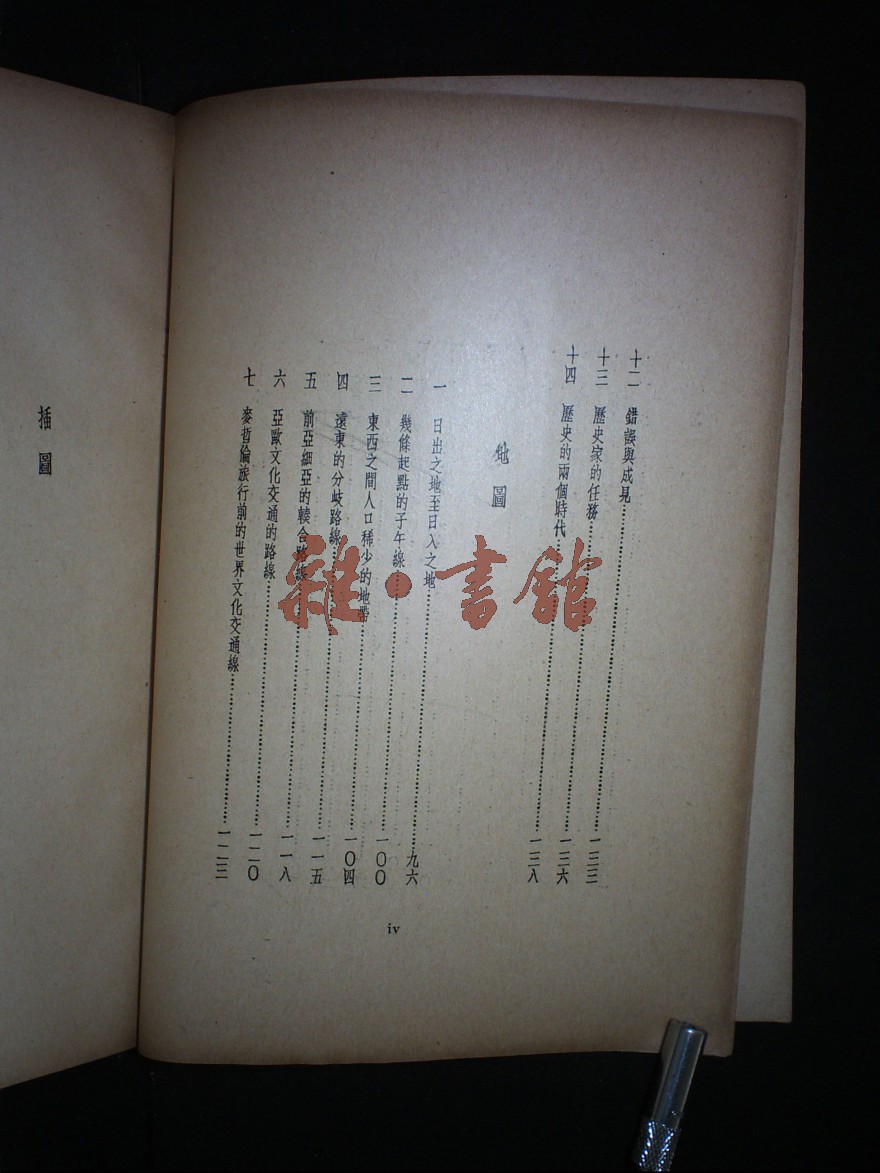 十二 錯誤與成見……一三三
十三 歷史家的任務……一三六
十四 歷史的兩個時代……一三八
地圖
一 日出之地至日入之地……九六
二 幾條起點的子午線……一〇〇
三 東西之間人口稀少的地帶……一〇四
四 遠東的分歧路線……一一五
五 前亞細亞的輳合路線……一一八
六 亞歐文化交通的路線……一二〇
七 麥哲倫旅行前的世界文化交通線……一二三
iv
插圖
雜·書館